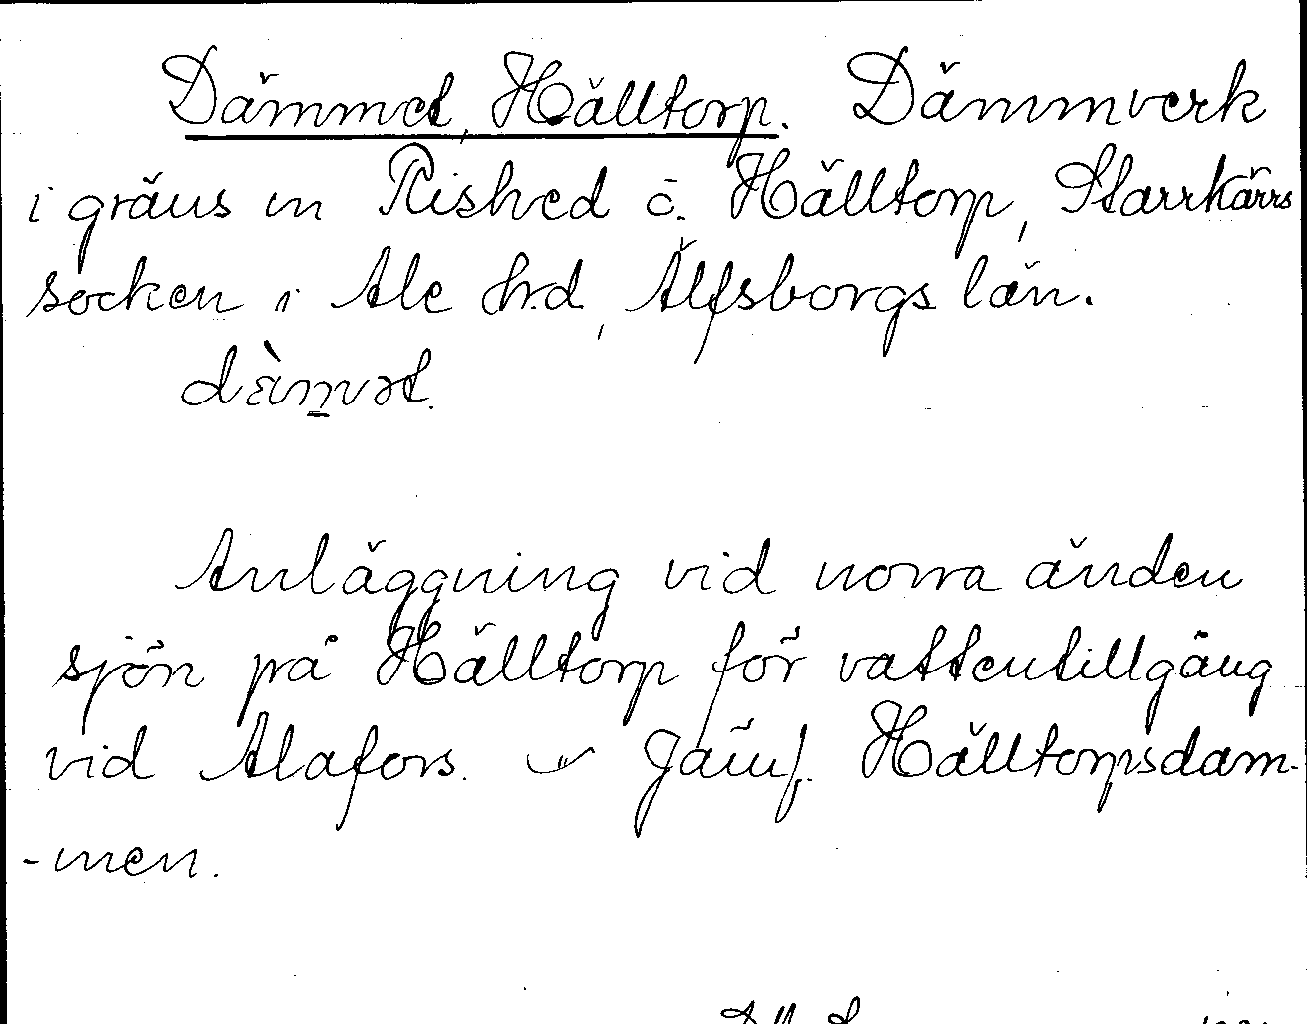 Dämmet, Hälltorp. Dämmverk
i gräns m Rished o. Hälltorp, Starrkärrs
socken i Ale hd, Älfsborgs län.
Anläggning vid norra änden
sjön på Hälltorp för vattentillgång
vid Alafors. Jämf. Hälltorpsdam-
-men.